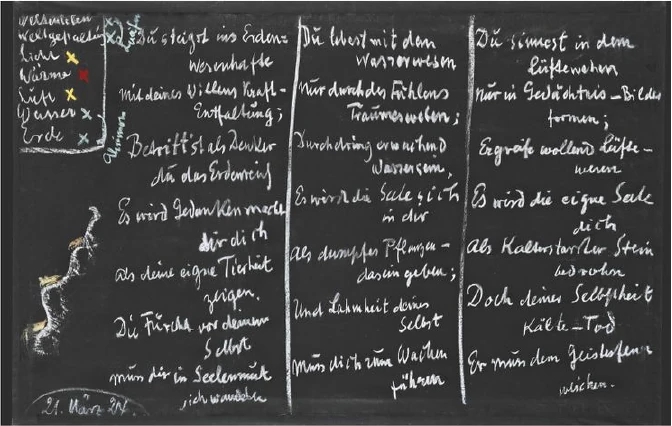 Licht
Wärme
Luft
Wasser
Erde
Du steigst ins Erden=
wesenhafte
Mit deines Willens Kraft-
Entfaltung;
Betritt'st als Denker
du das Erdenreich
Es wird Gedankenmacht
dir dich
als deine eigne Tierheit
zeigen.
Die Furcht vor deinem
Selbst
muss dir in Seelenmut
sich wandeln
21. März 24.
Du lebest mit dem
Wasserwesen
Nur durch des Fühlens
Traumesweben;
Durchdring erwachend
Wassersein,
Es wird die Seele sich
in dir
Als dumpfes Pflanzen-
dasein geben;
Und Lahmheit deines
Selbst
Muss dich zum Wachen
führen
Du sinnest in dem
Lüftewehen
Nur in Gedächtnis-Bildes
formen;
Ergreife wollend Lüfte-
wesen
Es wird die eigne Seele
dich
Als kalterstarrter Stein
bedrohen
Doch deiner Selbstheit
Kälte-Tod
Er muss dem Geistesfeuer
weichen.